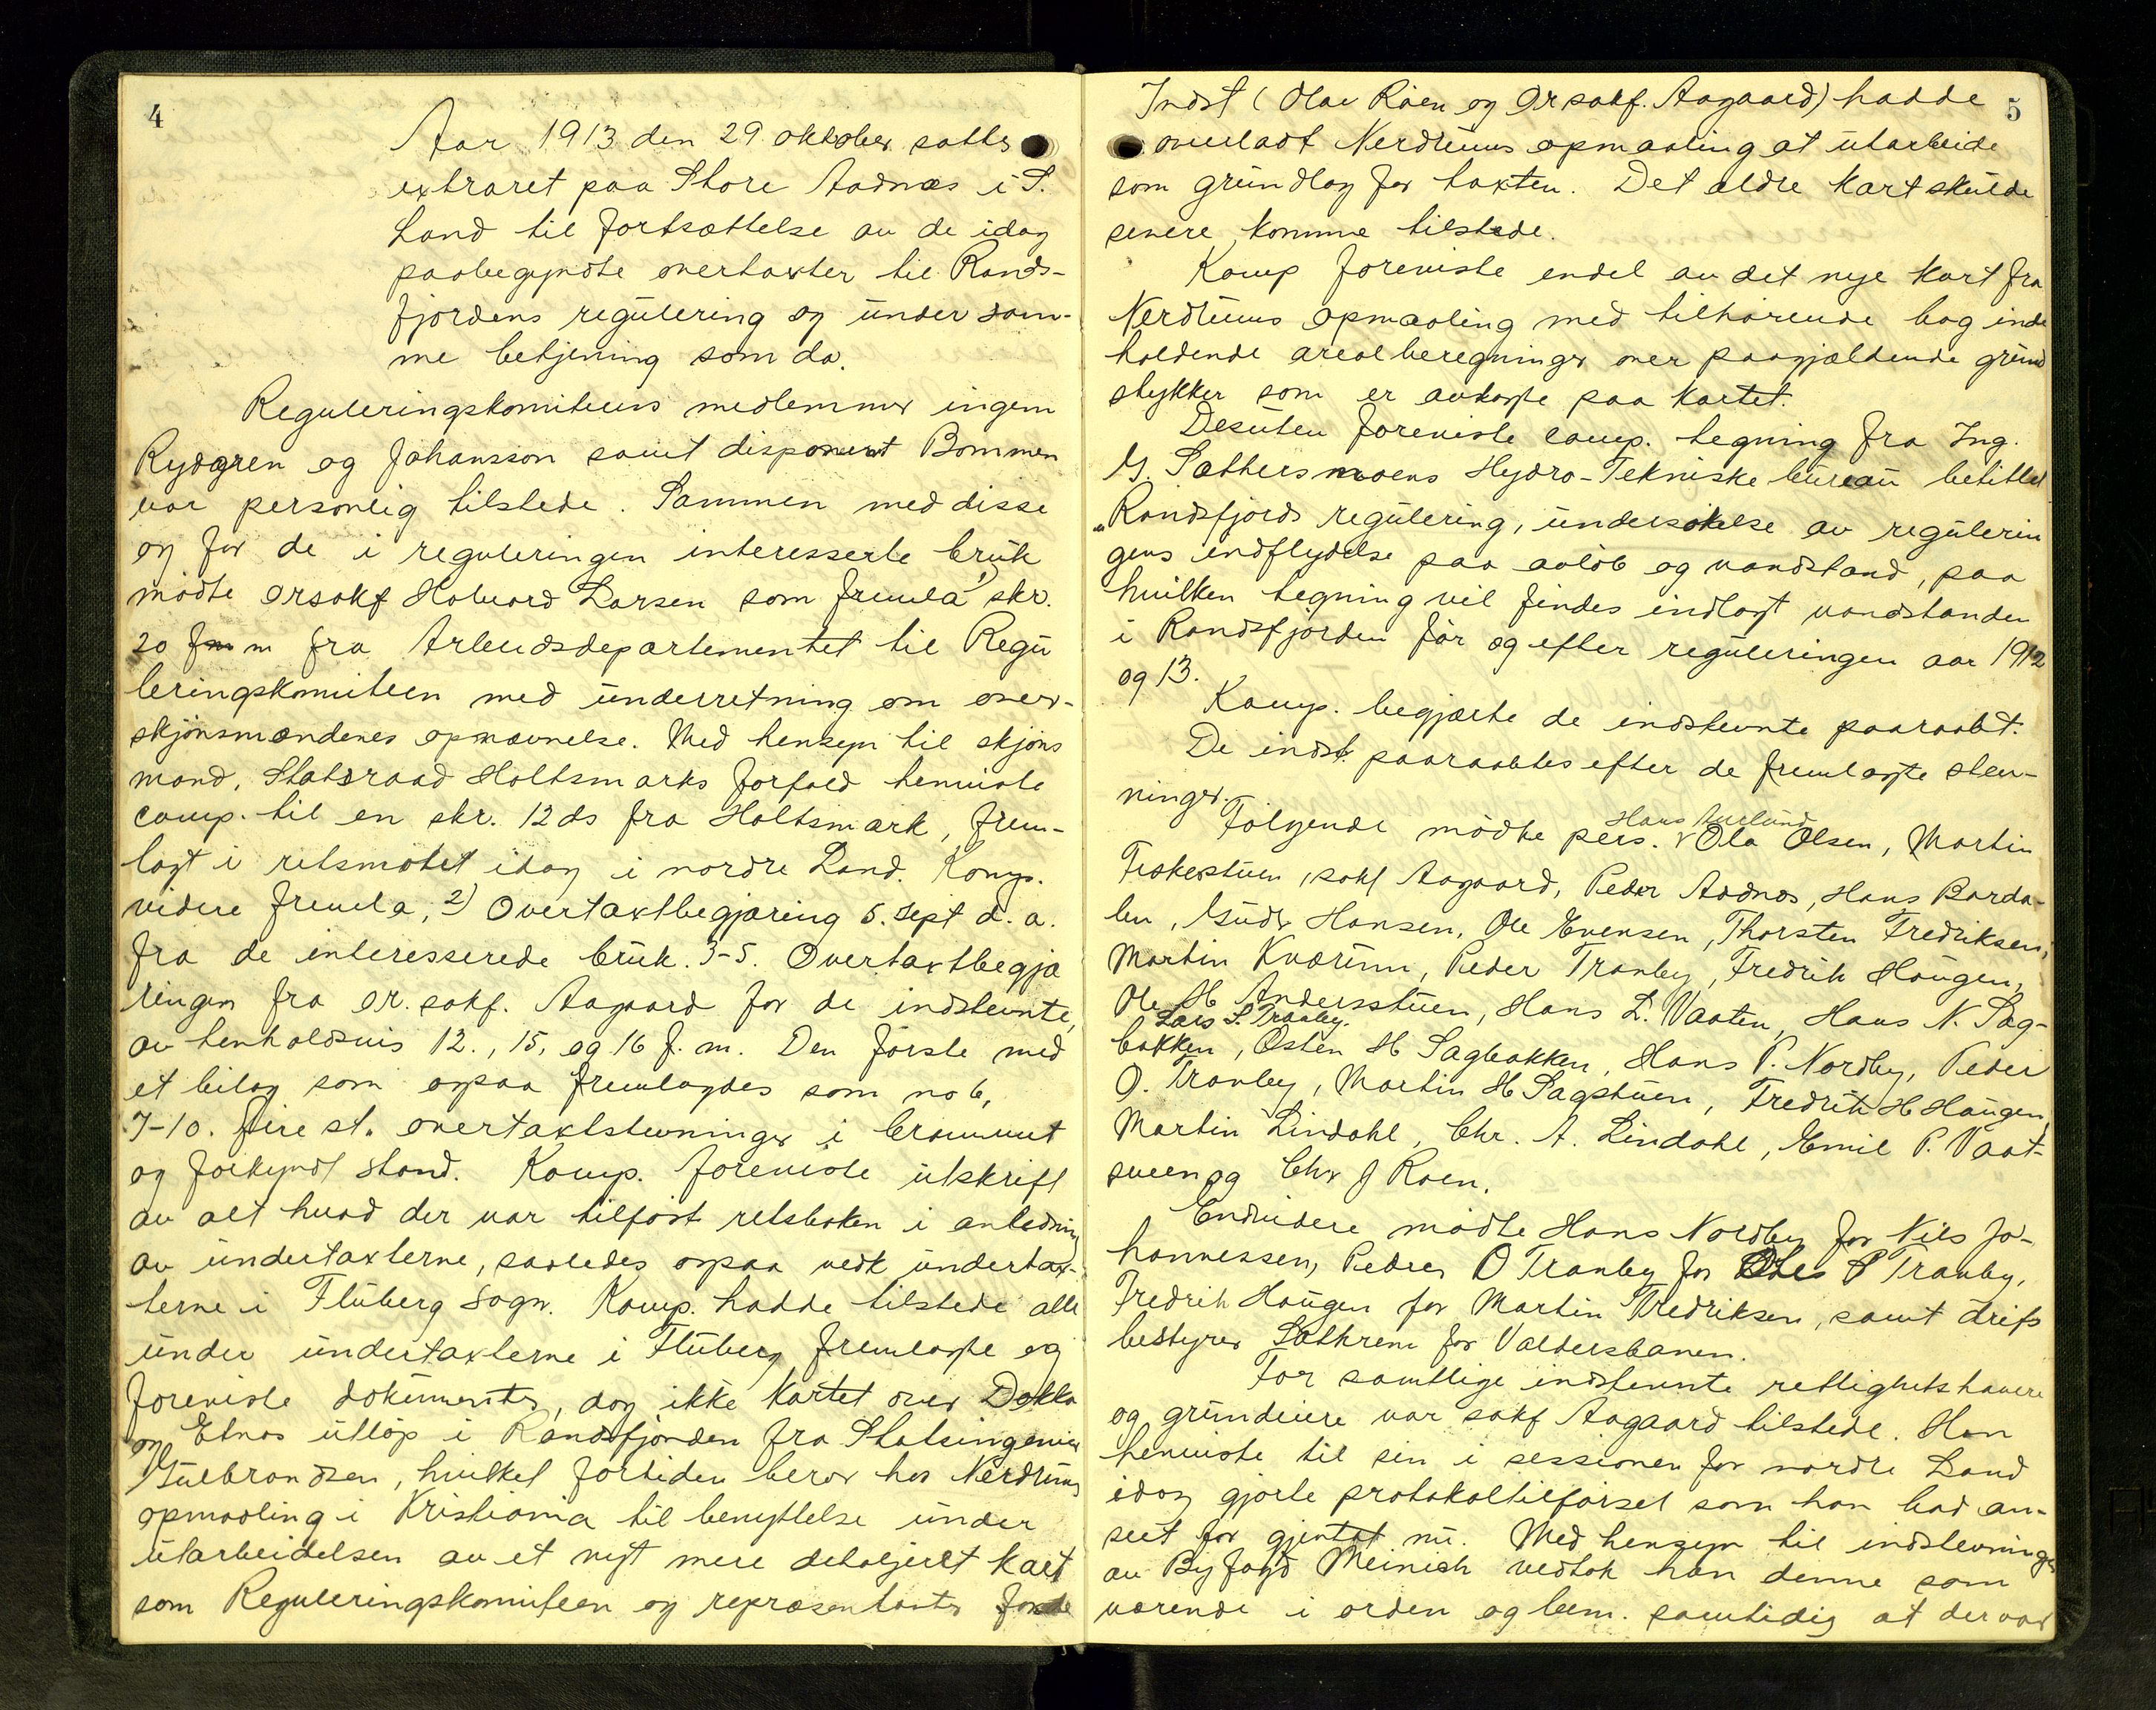 4
Aar 1913 den 29 oktober sattes
extraret paa Store Aadnæs i S.
Land til fortsættelse av de idag
paabegyndte overtaxter til Rands-
fjordens regulering og under sam-
me betjening som da.
Reguleringskomiteens medlemmer ingeni
Rydgren og Johansson samt disponent Bommen
var personlig tilstede. Sammen med disse
og for de i reguleringen interesserte bruk
mødte Orsakf Halvard Larsen som fremla 1) skr.
20 f m fra Arbeidsdepartementet til Regu
leringskomiteen med underretning om over-
skjønsmændenes opnævnelse. Med hensyn til skjøns
mand, Statsraad Holtsmarks forfald henviste
comp. til en skr. 12 ds fra Holtsmark, frem-
lagt i retsmøtet idag i nordre Land. Komp.
videre fremla, 2) Overtaxtbegjæring 5. sept d. a.
fra de interesserede bruk. 3-5. Overtaxtbegjæ
ringen fra or. sakf. Aagaard for de indstevnte,
av henholdsvis 12., 15, og 16 f. m. Den første med
et bilag som ogsaa fremlagdes som no 6,
7-10. fire st. overtaxtstevninger i beammet
og forkyndt stand. Komp. foreviste utskrift
av alt hvad der var tilført retsboken i anledning
av undertaxterne, saaledes ogsaa vedk undertax-
terne i Fluberg sogn. Komp. hadde tilstede alle
under undertaxterne i Fluberg fremlagte og
foreviste dokumenter, dog ikke kartet over Dokka
og Etnas utløp i Randsfjorden fra Statsingeniør
Gulbrandsen, hvilket fortiden beror hos Nerdrums
opmaaling i Kristiania til benyttelse under
utarbeidelsen av et nyt mere detaljert kart
som Reguleringskomiteen og repræsentanter for de
5
Indst (Olav Røen og Orsakf. Aagaard) hadde
overladt Nerdrums opmaaling at utarbeide
som grundlag for taxten. Det ældre kart skulde
senere komme tilstede.
Komp foreviste endel av det nye kart fra
Nerdrums opmaaling med tilhørende bog inde
holdende arealberegninger over paagjældende grund
stykker som er avtagte paa kartet.
Desuten foreviste comp. tegning fra Ing.
G. Sæthersmoens Hydro-Tekniske bureau betitlet
„Randsfjords regulering, undersøkelse av regulerin
gens indflydelse paa avløb og vandstand, paa
hvilken tegning vil findes indlagt vandstanden
i Randsfjorden før og efter reguleringen aar 1912
og 13.
Komp. begjærte de indstevnte paaraabt.
De indst. paaraabtes efter de fremlagte stev-
ninger.
Følgende mødte pers. Hans Aurlund Ola Olsen, Martin
Fiskestuen, sakf Aagaard, Peder Aadnæs, Hans Barda-
len, Gudb Hansen, Ole Evensen, Thorsten Fredriksen,
Martin Kværum, Peder Tranby, Fredrik Haugen,
Ole H Andersstuen, Hans L. Vaaten, Hans N. Sag-
Lars S. Tranby.
bakken, Østen H Sagbakken, Hans P. Nordby, Peder
O. Tranby, Martin H Sagstuen, Fredrik H Haugen,
Martin Lindahl, Chr. A. Lindahl, Emil P. Vaat-
sveen og Chr J Roen.
Endvidere mødte Hans Nordby for Nils Jo-
hannessen, Peder O Tranby for P Tranby,
Fredrik Haugen for Martin Fredriksen, samt drifs
bestyrer Lathrem for Valdersbanen.
For samtlige indstevnte rettighetshavere
og grundeiere var sakf Aagaard tilstede. Han
henviste til sin i sessionen for nordre Land
idag gjorte protokoltilførsel som han bad an-
seet for gjentat nu. Med hensyn til indstevningen
av Byfogd Meinich vedtok han denne som
værende i orden og bem. samtidig at der var